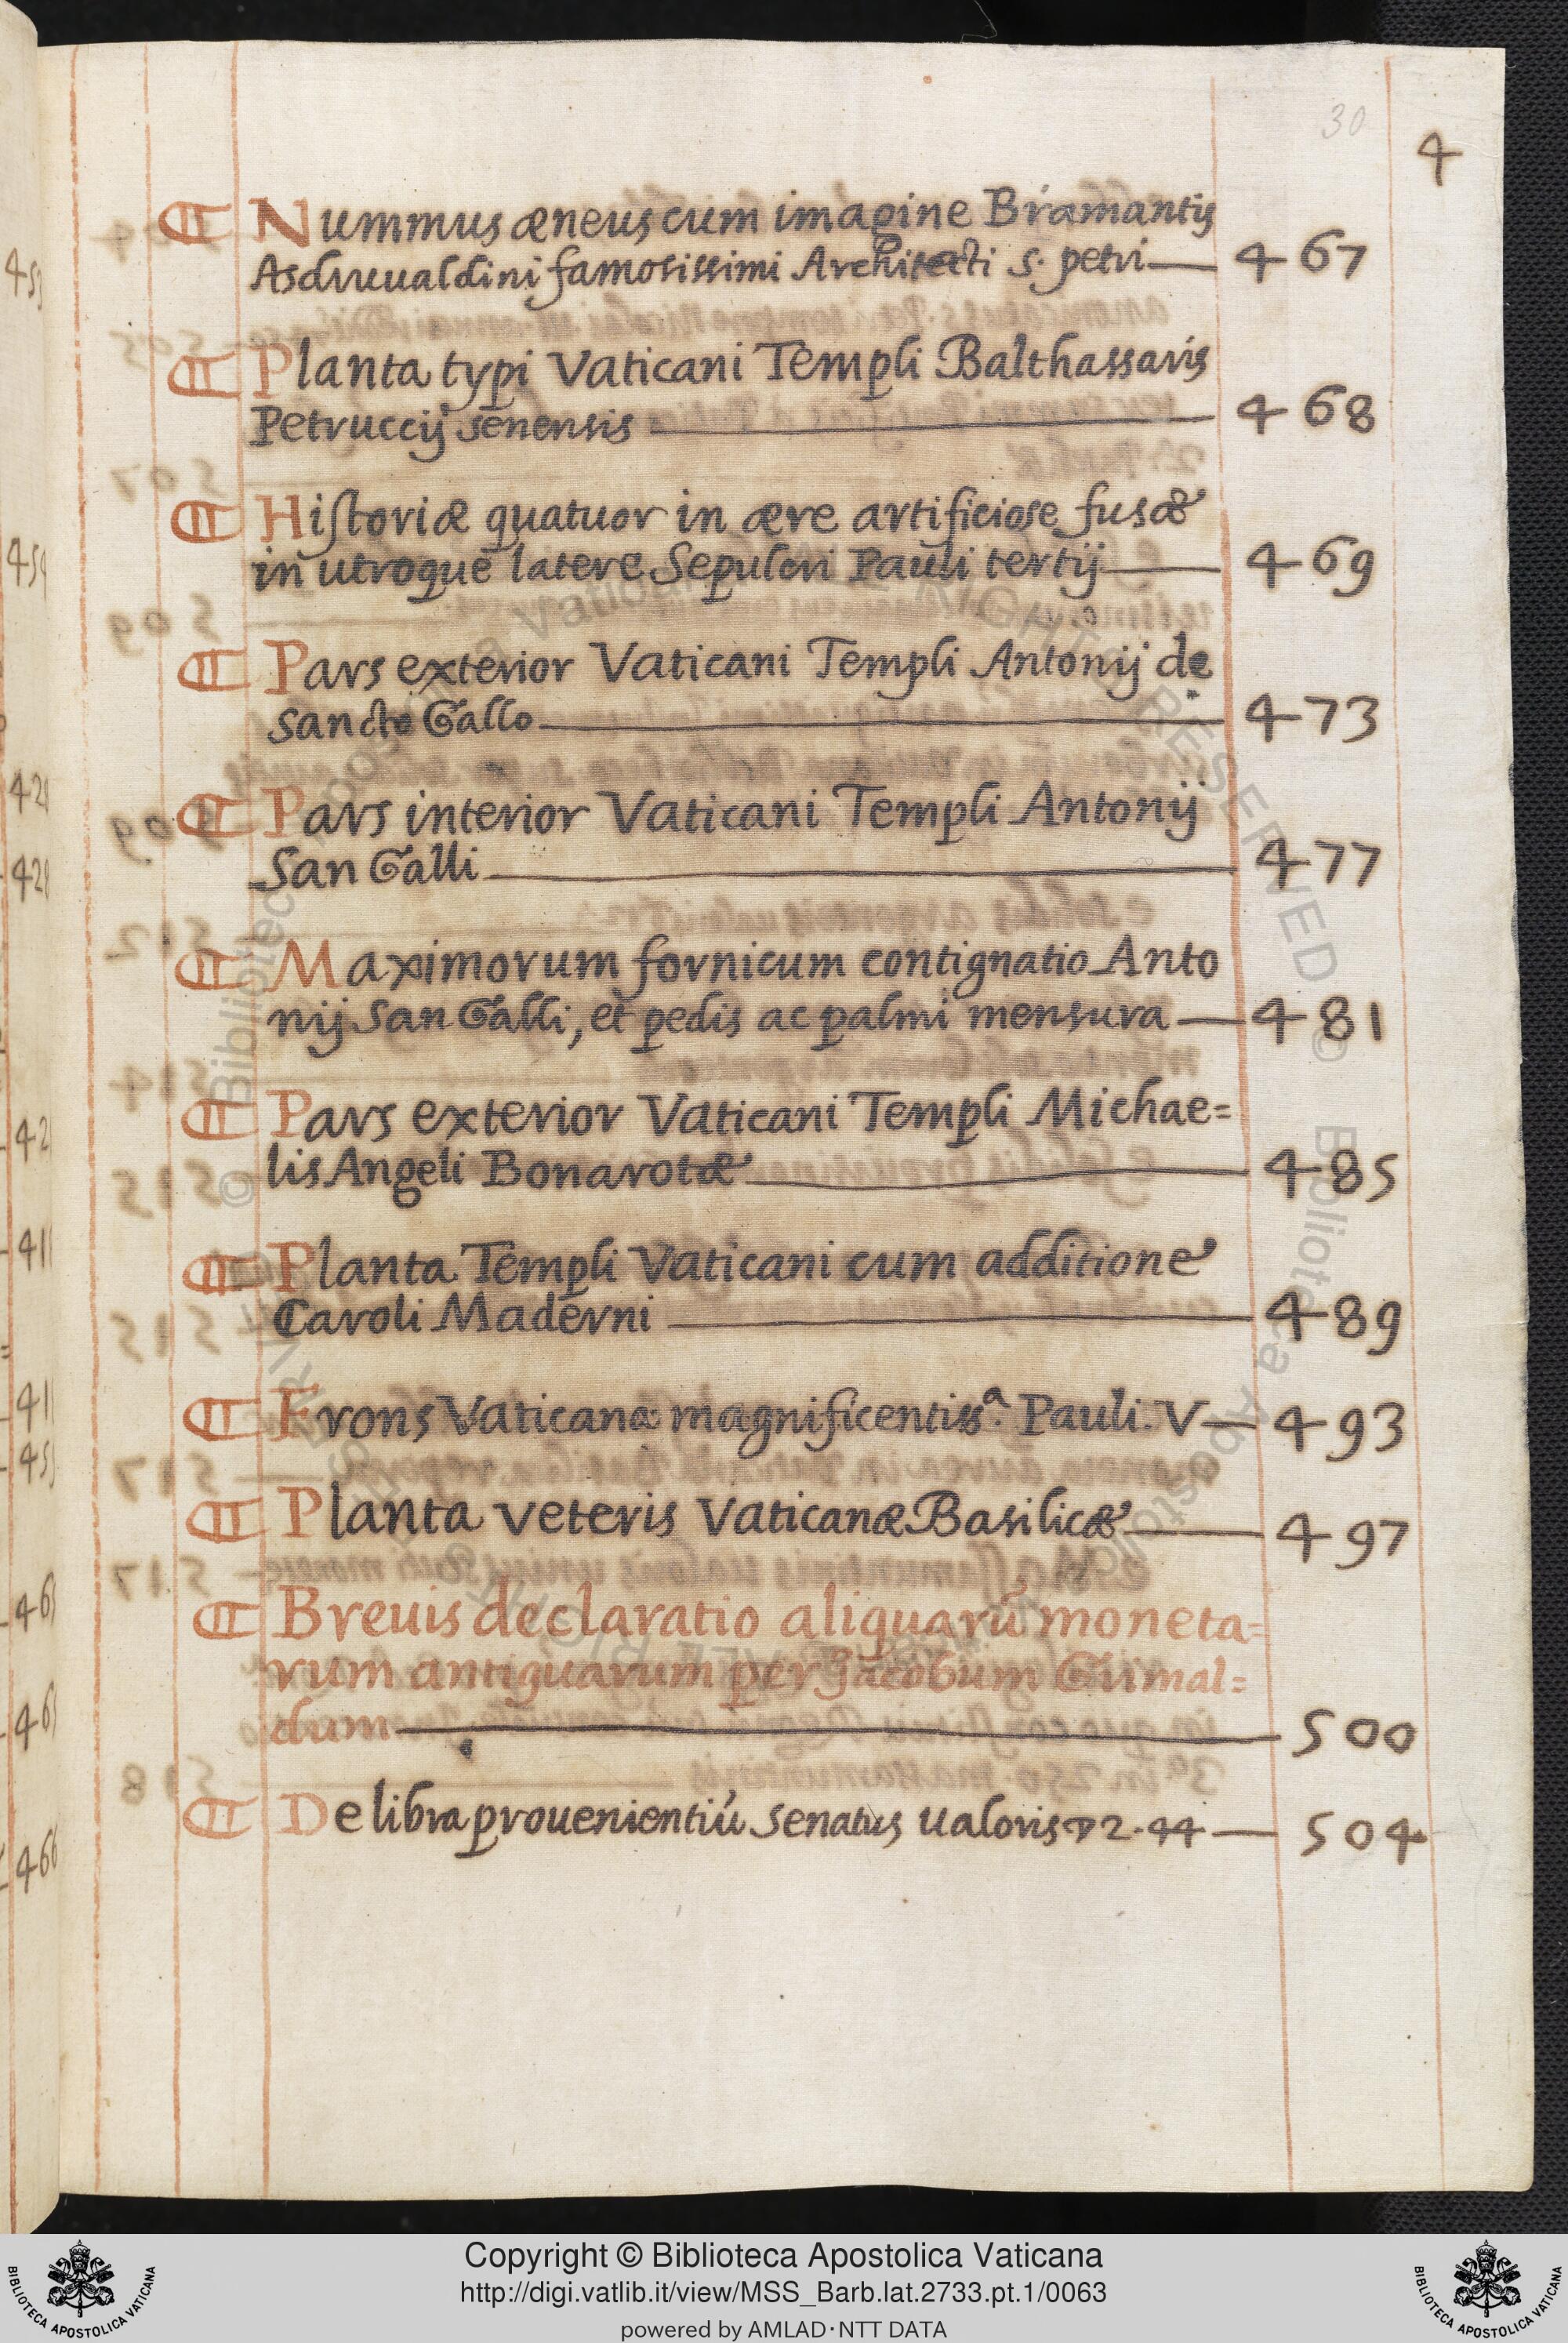 30
4
¶ Nummus æneus cum imagine Bramantis
Asdruualdini famosissimi Architecti s. petri — 467
¶ Planta typi Vaticani Templi Balthassaris
Petruccij senensis — 468
¶ Historiæ quatuor in ære artificiose fusæ
in utroque latere Sepulcri Pauli tertij — 469
¶ Pars exterior Vaticani Templi Antonij de
Sancto Gallo — 473
¶ Pars interior Vaticani Templi Antonij
San Galli — 477
¶ Maximorum fornicum contignatio Anto
nij San Galli, et pedis ac palmi mensura — 481
¶ Pars exterior Vaticani Templi Michae=
lis Angeli Bonarotæ — 485
¶ Planta Templi Vaticani cum additione
Caroli Maderni — 489
¶ Frons Vaticana magnificentissª. Pauli. V — 493
¶ Planta veteris Vaticanæ Basilicæ — 497
¶ Breuis declaratio aliquarū moneta=
rum antiquarum per Jacobum Grimal=
dum — 500
¶ De libra prouenientiū Senatus ualoris 2.44 — 504
Copyright © Biblioteca Apostolica Vaticana
http://digi.vatlib.it/view/MSS_Barb.lat.2733.pt.1/0063
powered by AMLAD·NTT DATA
BIBLIOTECA APOSTOLICA VATICANA
BIBLIOTECA APOSTOLICA VATICANA